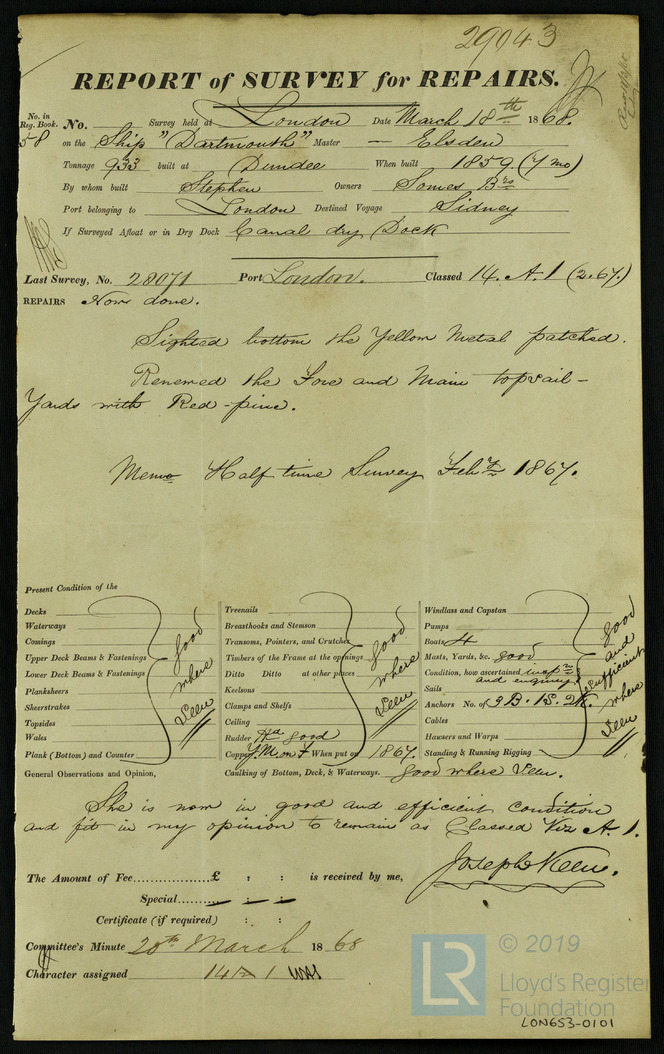 29043
REPORT of SURVEY for REPAIRS.
No. in Reg. Book. No. Survey held at London Date March 18th 1868.
58 on the Ship "Dartmouth" Master — Elsden
Tonnage 933 built at Dundee When built 1859 (7 mo)
By whom built Stephen Owners Somes Brs
Port belonging to London Destined Voyage Sidney
If Surveyed Afloat or in Dry Dock Canal dry Dock
Last Survey, No. 28071 Port London. Classed 14. A. 1 (2.67.)
REPAIRS Now done.
Sighted bottom the Yellow Metal patched.
Renewed the Fore and Main topsail-
Yards with Red-pine.
Memo Half time Survey Feby 1867.
Present Condition of the
Decks
Waterways
Comings
Upper Deck Beams & Fastenings
Lower Deck Beams & Fastenings
Planksheers
Sheerstrakes
Topsides
Wales
Plank (Bottom) and Counter
good where seen
Treenails
Breasthooks and Stemson
Transoms, Pointers, and Crutches
Timbers of the Frame at the openings
Ditto Ditto at other places
Keelsons
Clamps and Shelfs
Ceiling
Rudder good
Copper Y.M. on F When put on 1867.
good where seen
Windlass and Capstan
Pumps
Boats 4
Masts, Yards, &c. good
Condition, how ascertained inspn and enquiry
Sails
Anchors No. of 3B. 1S. 2K.
Cables
Hawsers and Warps
Standing & Running Rigging
good and sufficient where seen
General Observations and Opinion, Caulking of Bottom, Deck, & Waterways. good where seen.
She is now in good and efficient condition
and fit in my opinion to remain as Classed Viz A. 1.
The Amount of Fee £ : : is received by me, Joseph Keen.
Special : :
Certificate (if required) : :
Committee's Minute 20th March 1868
Character assigned 14 A 1
LR
© 2019
Lloyd's Register
Foundation
LON653-0101